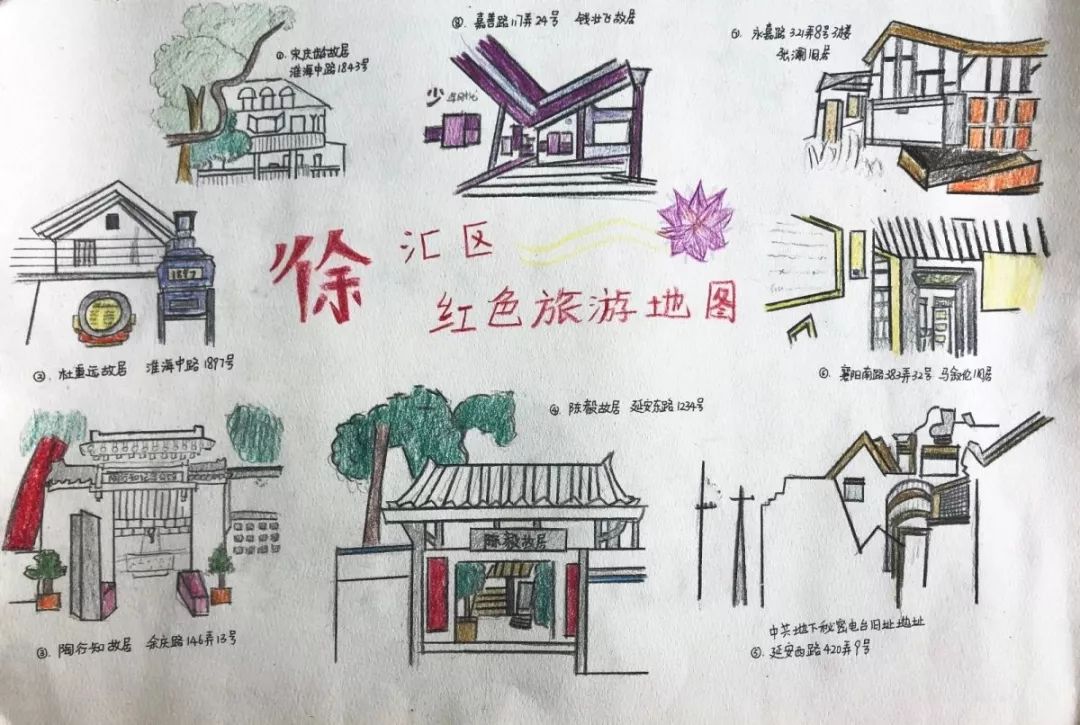 ①. 宋庆龄故居
淮海中路1843号
⑧. 嘉善路117弄24号 钱壮飞故居
⑦. 永嘉路321弄8号3楼
张澜旧居
少
1897
徐汇区
红色旅游地图
②. 杜重远故居 淮海中路1897号
⑥. 襄阳南路383弄32号 马叙伦旧居
④. 陈毅故居 延安东路1234号
陈毅故居
③. 陶行知故居 余庆路146弄13号
中共地下秘密电台旧址地址
⑤. 延安西路420弄9号